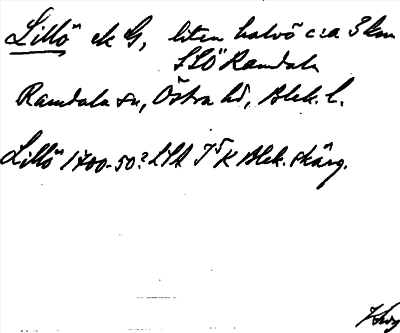 Lillö ek G, liten halvö c:a 3 km
SSÖ Ramdala
Ramdala sn, Östra hd, Blek. l.
Lillö 1700-50? LSA Blek. skärg.